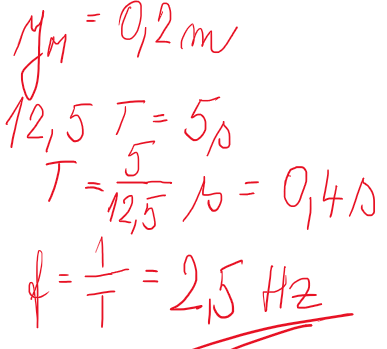 y_M = 0,2 m
12,5 T = 5 s
T = 5/12,5 s = 0,4 s
f = 1/T = 2,5 Hz